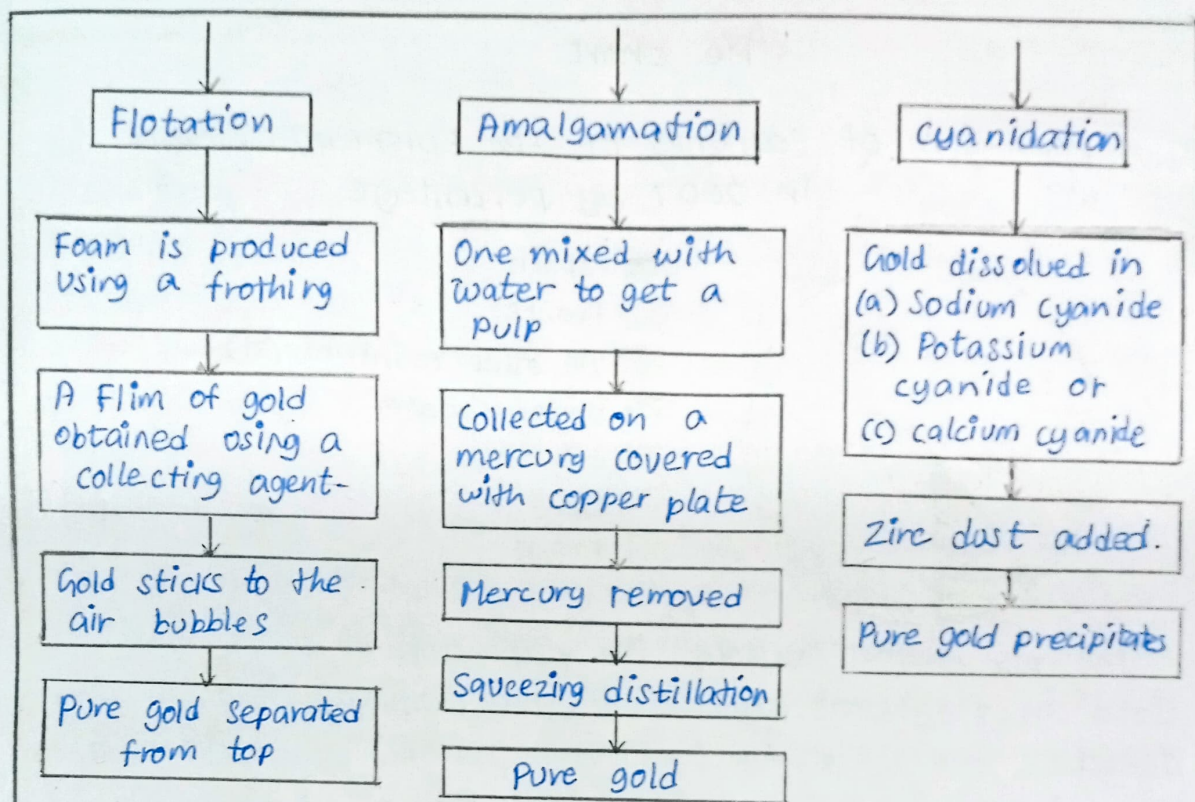 Flotation
Foam is produced
using a frothing
A Flim of gold
obtained using a
collecting agent-
Gold sticks to the
air bubbles
Pure gold separated
from top
Amalgamation
One mixed with
water to get a
pulp
Collected on a
mercury covered
with copper plate
Mercury removed
Squeezing distillation
Pure gold
Cyanidation
Gold dissolved in
(a) Sodium cyanide
(b) Potassium
cyanide or
(c) calcium cyanide
Zinc dust added.
Pure gold precipitates